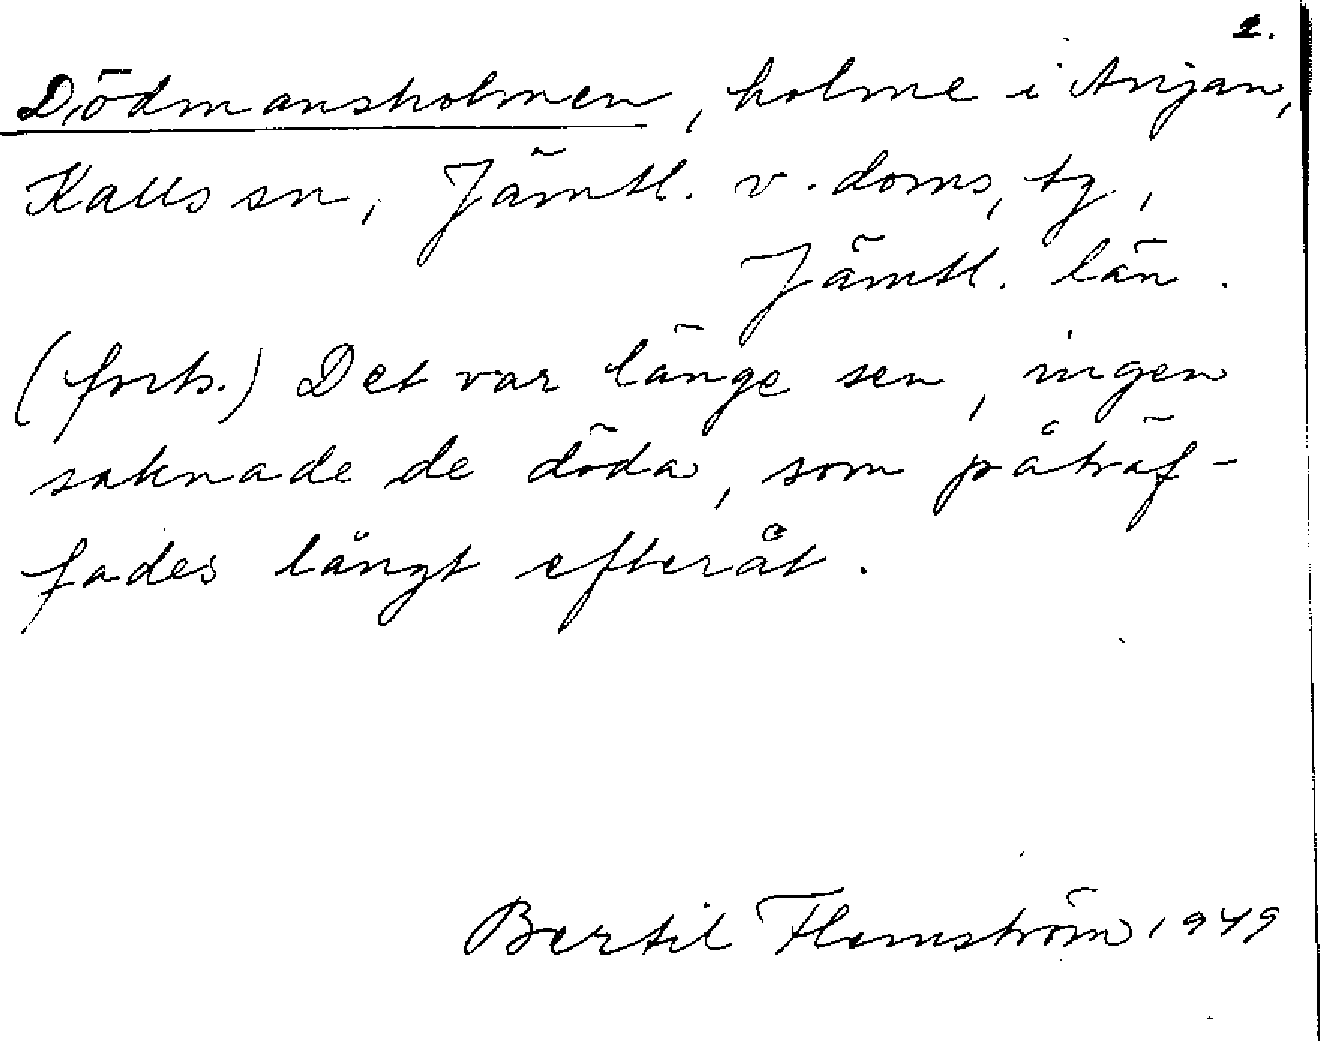 2.
Dödmansholmen, holme i Anjan,
Kalls sn, Jämtl. v. doms, tg,
Jämtl. län.
(forts.) Det var länge sen, ingen
saknade de döda, som påträf-
fades långt efteråt.
Bertil Flemström 1949